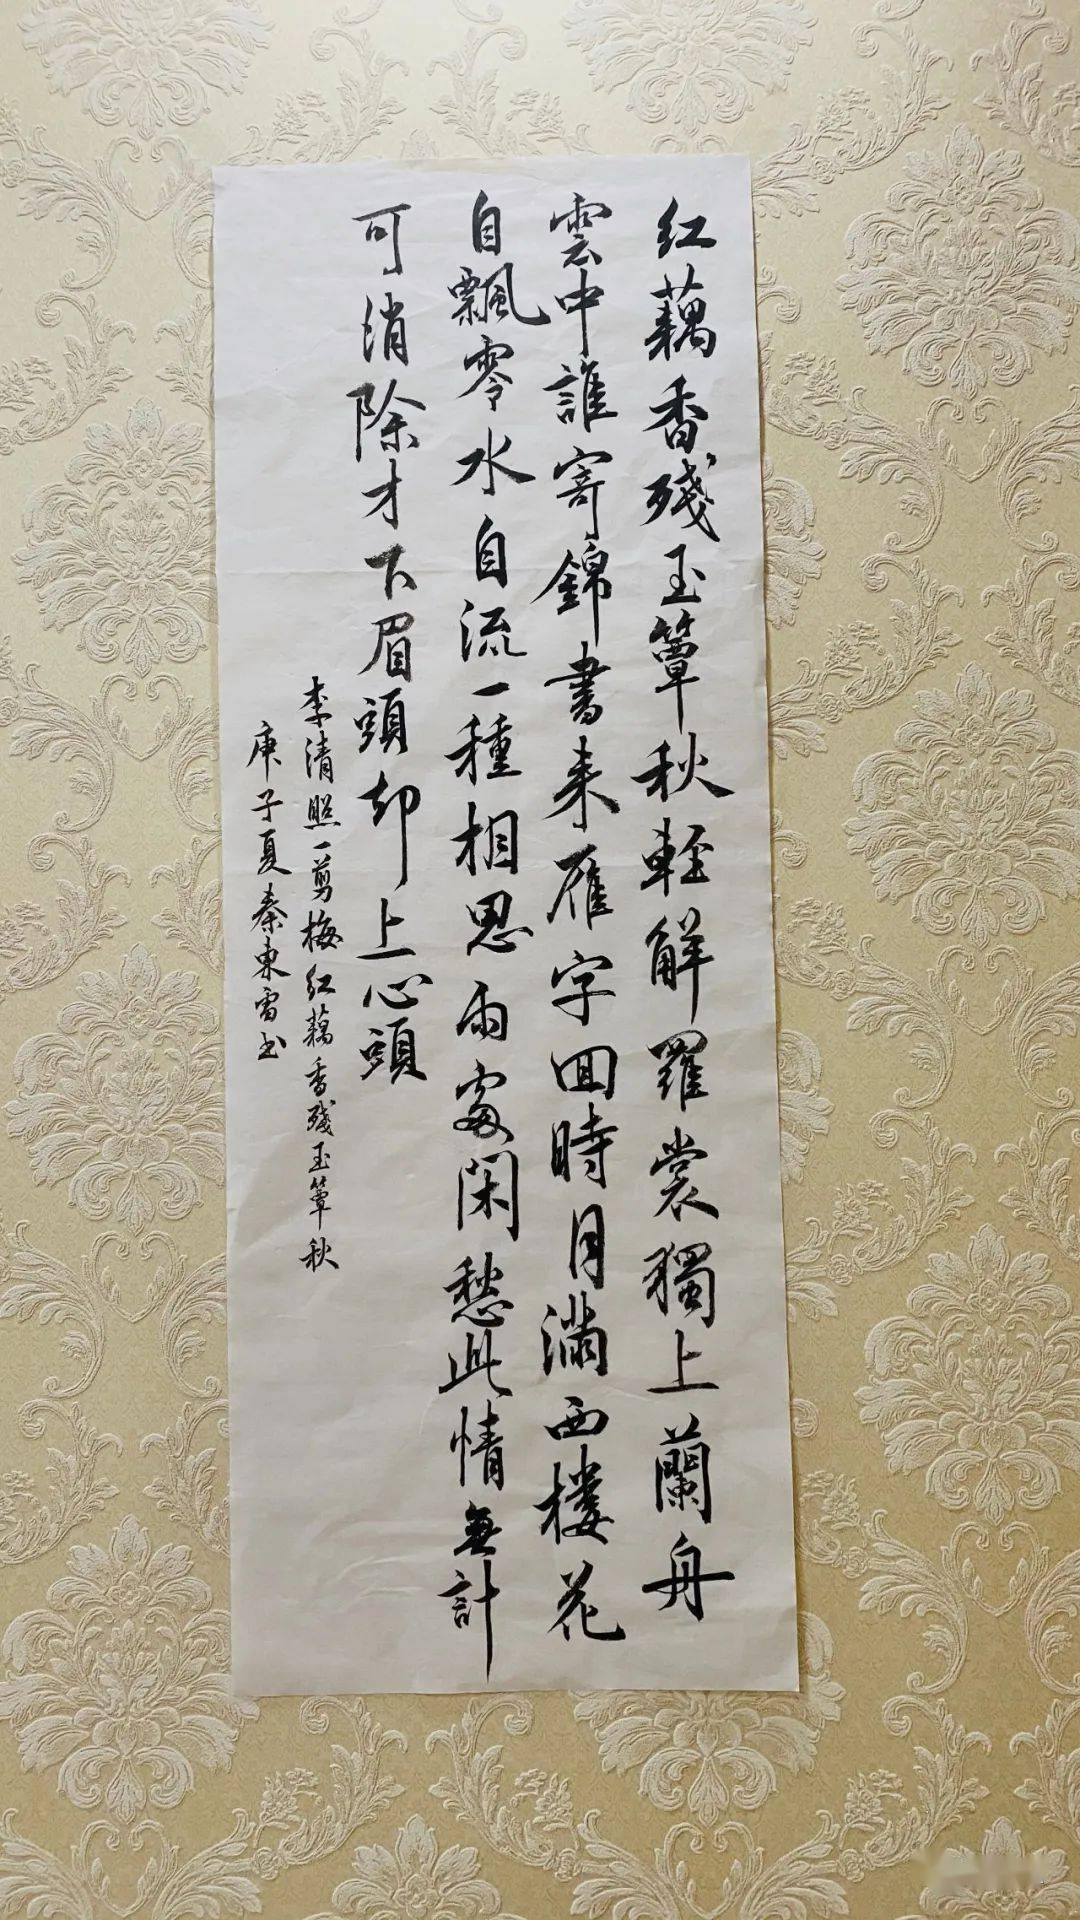 红藕香残玉簟秋轻解羅裳獨上蘭舟
雲中誰寄錦書来雁字回時月滿西楼花
自飄零水自流一種相思兩處閑愁此情無計
可消除才下眉頭却上心頭
李清照一剪梅红藕香残玉簟秋
庚子夏秦東雷书